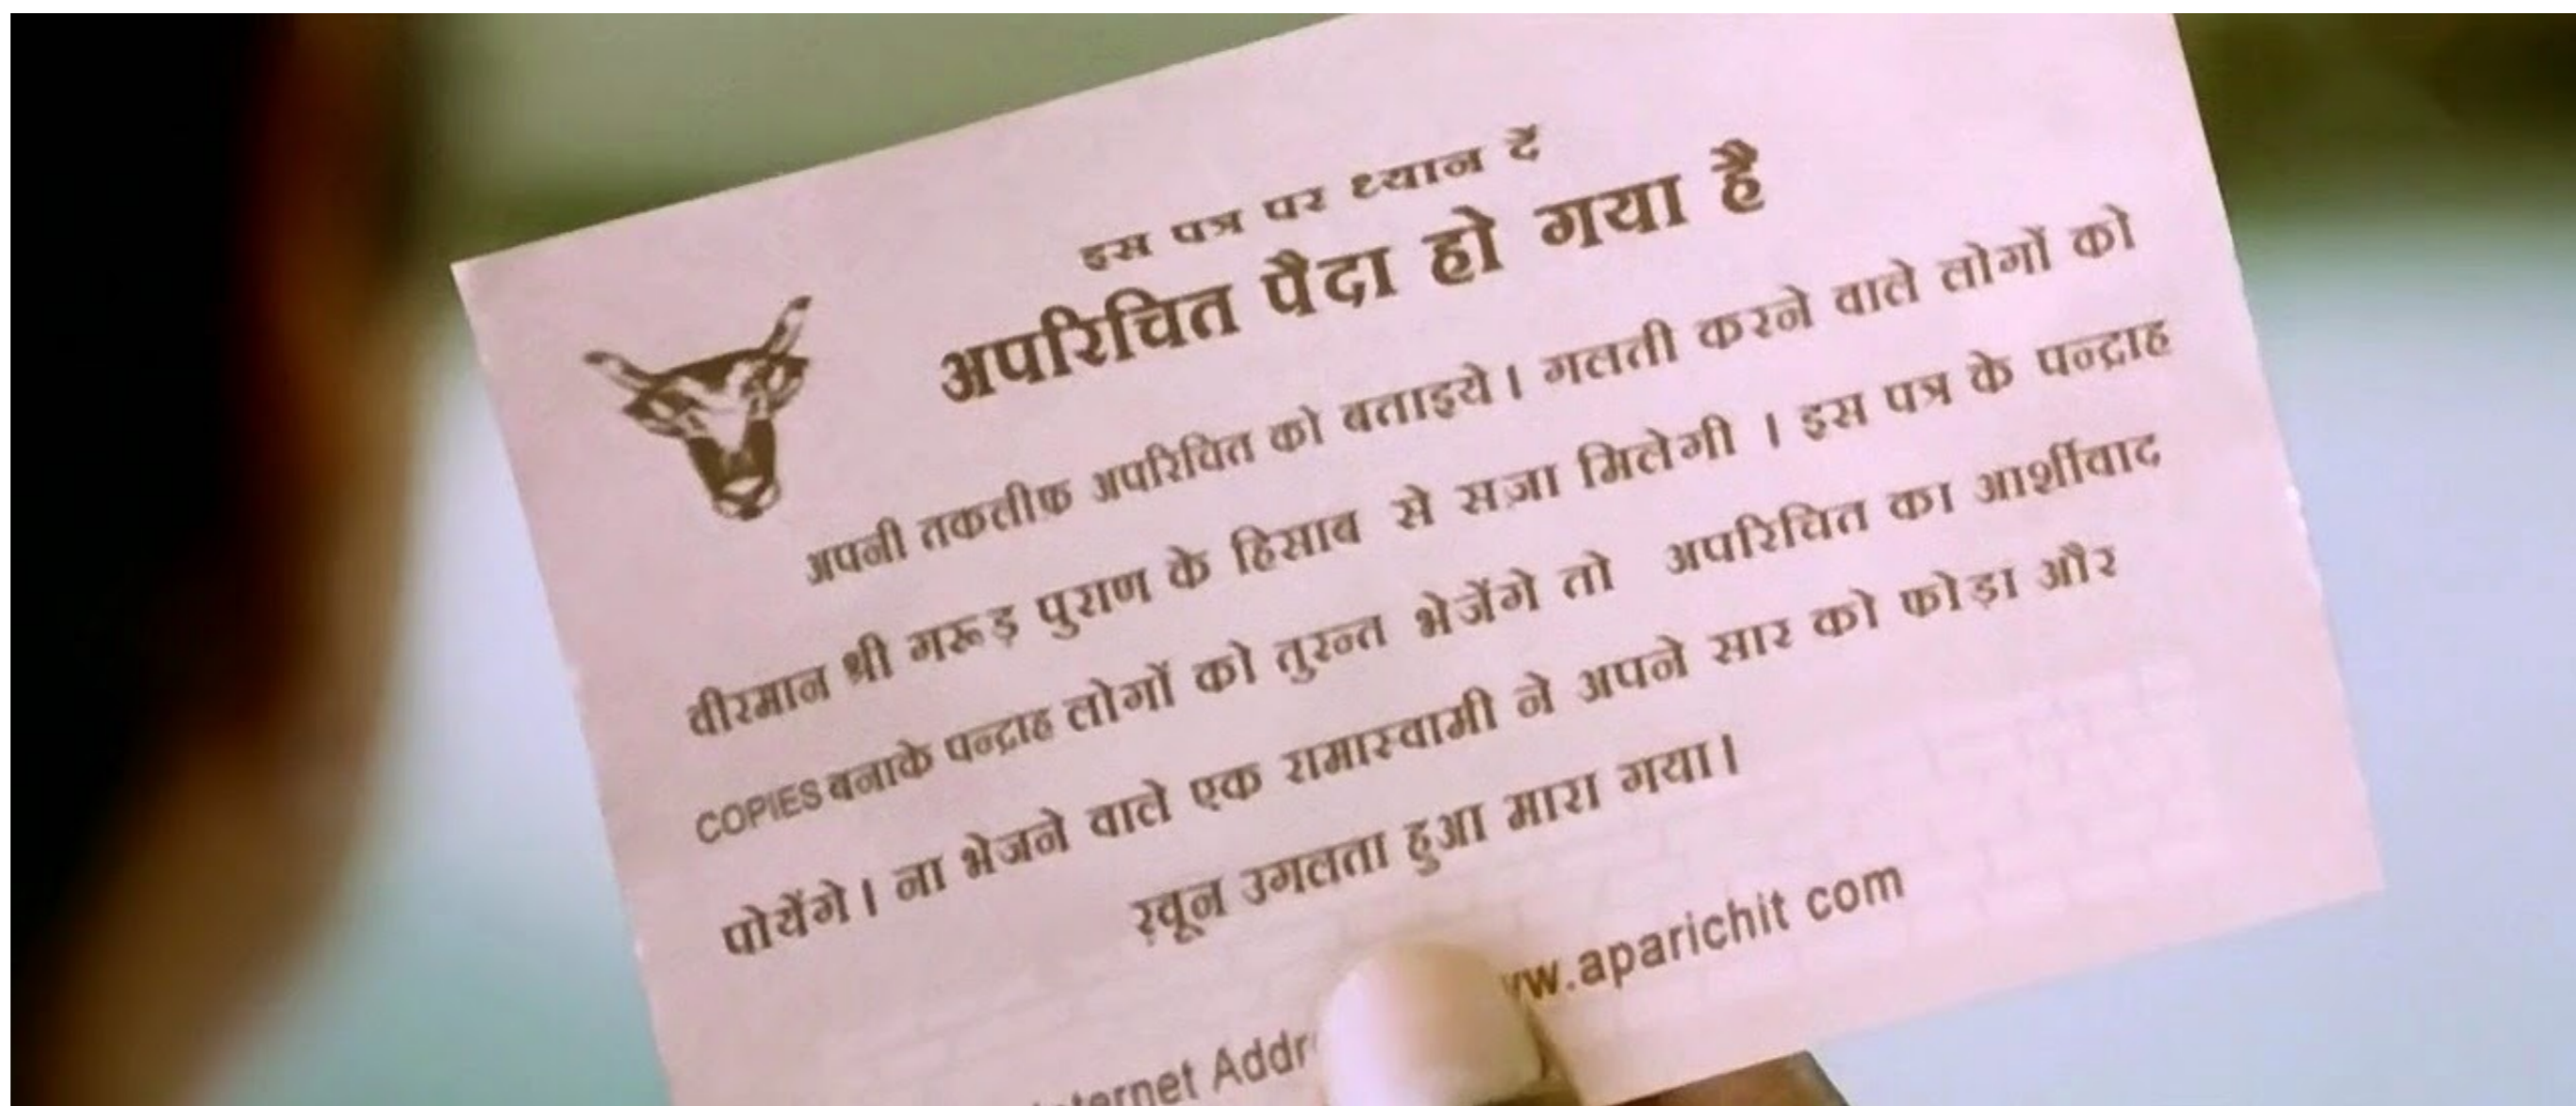 इस पत्र पर ध्यान दें
अपरिचित पैदा हो गया है
अपनी तकलीफ अपरिचित को बताइये। गलती करने वाले लोगों को
वीरमान श्री गरूड़ पुराण के हिसाब से सज़ा मिलेगी । इस पत्र के पन्द्राह
COPIES बनाके पन्द्राह लोगों को तुरन्त भेजेंगे तो अपरिचित का आर्शीवाद
पोयेंगे। ना भेजने वाले एक रामास्वामी ने अपने सार को फोड़ा और
ख़ून उगलता हुआ मारा गया।
www.aparichit com
Internet Addr